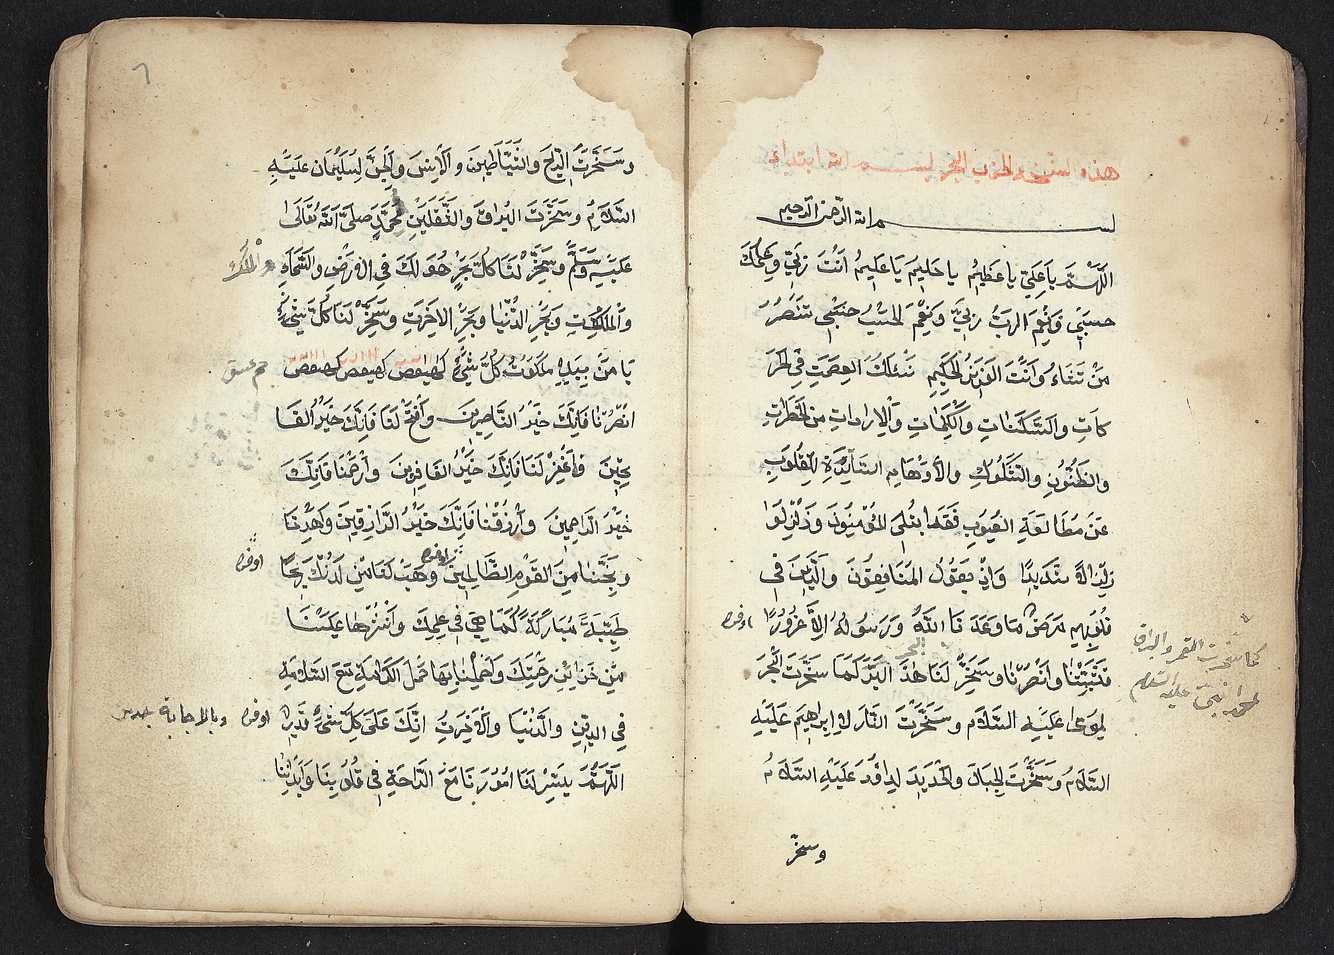 هذه نسخة الحزب البحر بسم الله ابتداء
بسم الله الرحمن الرحيم
اللّهمّ يا عَلِيّ يا عظيمُ يا حَليمُ يا عَليمُ انتَ رَبّي وَعِلْمُكَ
حسبي فَنِعْمَ الربُّ ربّي وَنِعْمَ الحَسْبُ حَسْبي تَنْصُرُ
مَنْ تَشَاءُ وَأنْتَ العَزيزُ الحَكيمِ نَسْئلُكَ العِصْمَتِ في الحَرَ
كَاتِ والسَّكَنَاتِ وَالْكَلِمَاتِ وَالْاِرادَاتِ من الخَطَراتِ
وَالظُّنُونِ والشُّكُوكِ وَالأَوْهَامِ السَّاتِرَةِ لِلْقُلُوبِ
عَنْ مُطَالَعَةِ الغُيُوبِ فَقَدِ ابتُلِيَ المُؤْمِنُونَ وَزُلْزِلُوا
زِلْزَالاً شَدِيدًا وَاِذْ يَقُولُ المُنَافِقُونَ وَالَّذِينَ في
قُلُوبِهِم مَرَضٌ مَا وَعَدَنَا اللّٰهُ وَرَسُولُهُ اِلاَّ غُرُورًا
فَثَبِّتْنَا وَانْصُرْنَا وسَخِّرْ لَنَا هٰذَ البَحْرَ كَمَا سَخَّرْتَ البَحْرَ
لِمُوسَى عليْهِ السَّلَام وسَخَّرْتَ النَّارَ لِاِبراهيمَ عَلَيْهِ
السَّلَامُ وسَخَّرْتَ الجبَالَ والحَديدَ لِدَاوُدَ عَلَيْهِ السَّلَامُ
البحر
كما سخرت القمر والبراق
لمحمد النبي عليه السلام
وسخر
٦
وسَخَّرْتَ الرِّيحَ والشَّيَاطِينَ وَالْاِنْسَ وَالْجِنَّ لِسُلَيْمَانَ عَلَيْهِ
السَّلَامُ وسَخَّرْتَ البُرَاقَ والثَّقَلَيْنِ لِمُحَمَّدٍ صَلَّى اللّٰهُ تَعَالَى
عَلَيْهِ وَسَلَّمَ وسَخِّرْ لَنَا كُلَّ بَحْرٍ هُوَ لَكَ في الْاَرْضِ وَالسَّمَاءِ وَالْمُلْكِ
وَالْمَلَكُوتِ وبَحْرِ الدُّنْيَا وبَحْرِ الاخِرَتِ وسَخِّرْ لَنَا كُلَّ شَيْءٍ
يَا مَنْ بِيَدِهِ مَلَكُوتُ كُلِّ شَيْءٍ كهيعص كهيعص كهيعص حم عسق
انْصُرْنَا فَاِنَّكَ خَيْرُ النَّاصِرِينَ وافْتَحْ لَنَا فَاِنَّكَ خَيْرُ الفَا
تِحِينَ وَاغْفِرْ لَنَا فَاِنَّكَ خَيْرُ الغَافِرِينَ وارْحَمْنَا فَاِنَّكَ
خَيْرُ الرَّاحِمِينَ وَارْزُقْنَا فَاِنَّكَ خَيْرُ الرَّازِقِينَ وَاهْدِنَا
ونَجِّنَا مِنَ القَوْمِ الظَّالِمِينَ وَهَبْ لَنَا مِنْ لَدُنْكَ رِيحًا
طَيِّبَةً مُبَارَكَةً كَمَا هِيَ في عِلْمِكَ وَانْشُرْهَا عَلَيْنَا
مِنْ خَزَائِنِ رَحْمَتِكَ وَاحْمِلْنَا بِهَا حَمْلَ الكَرَامَةِ مَعَ السَّلَامَةِ
في الدِّينِ وَالدُّنْيَا وَالْاَخِرَتِ اِنَّكَ عَلَى كُلِّ شَيْءٍ قَدِيرٌ
اللّٰهُمَّ يَسِّرْ لَنَا اُمُورَنَا مَعَ الرَّاحَةِ في قُلُوبِنَا وَاَبْدَانِنَا